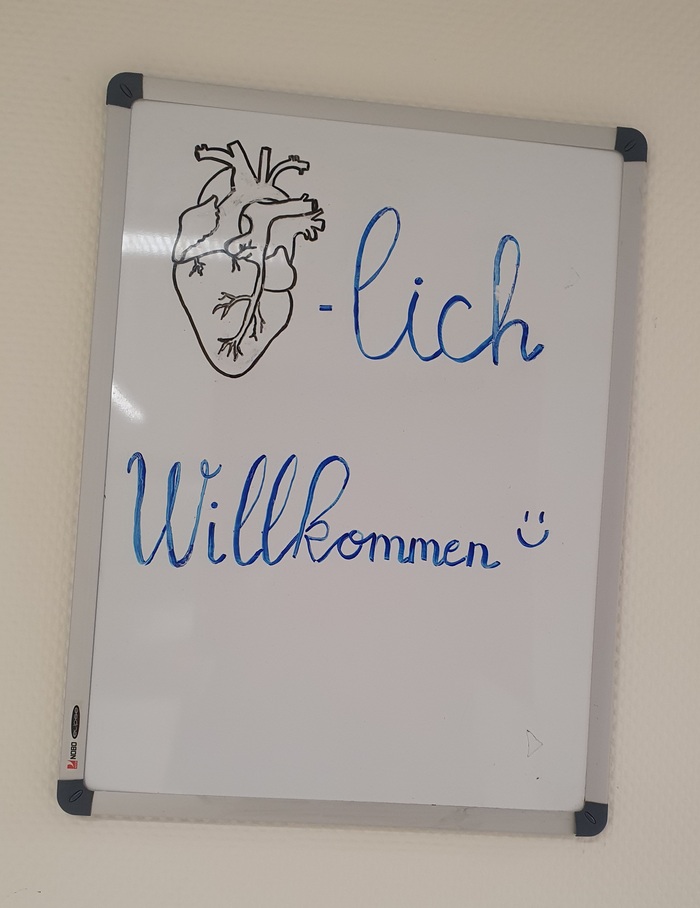 -lich
Willkommen :)
NOBO